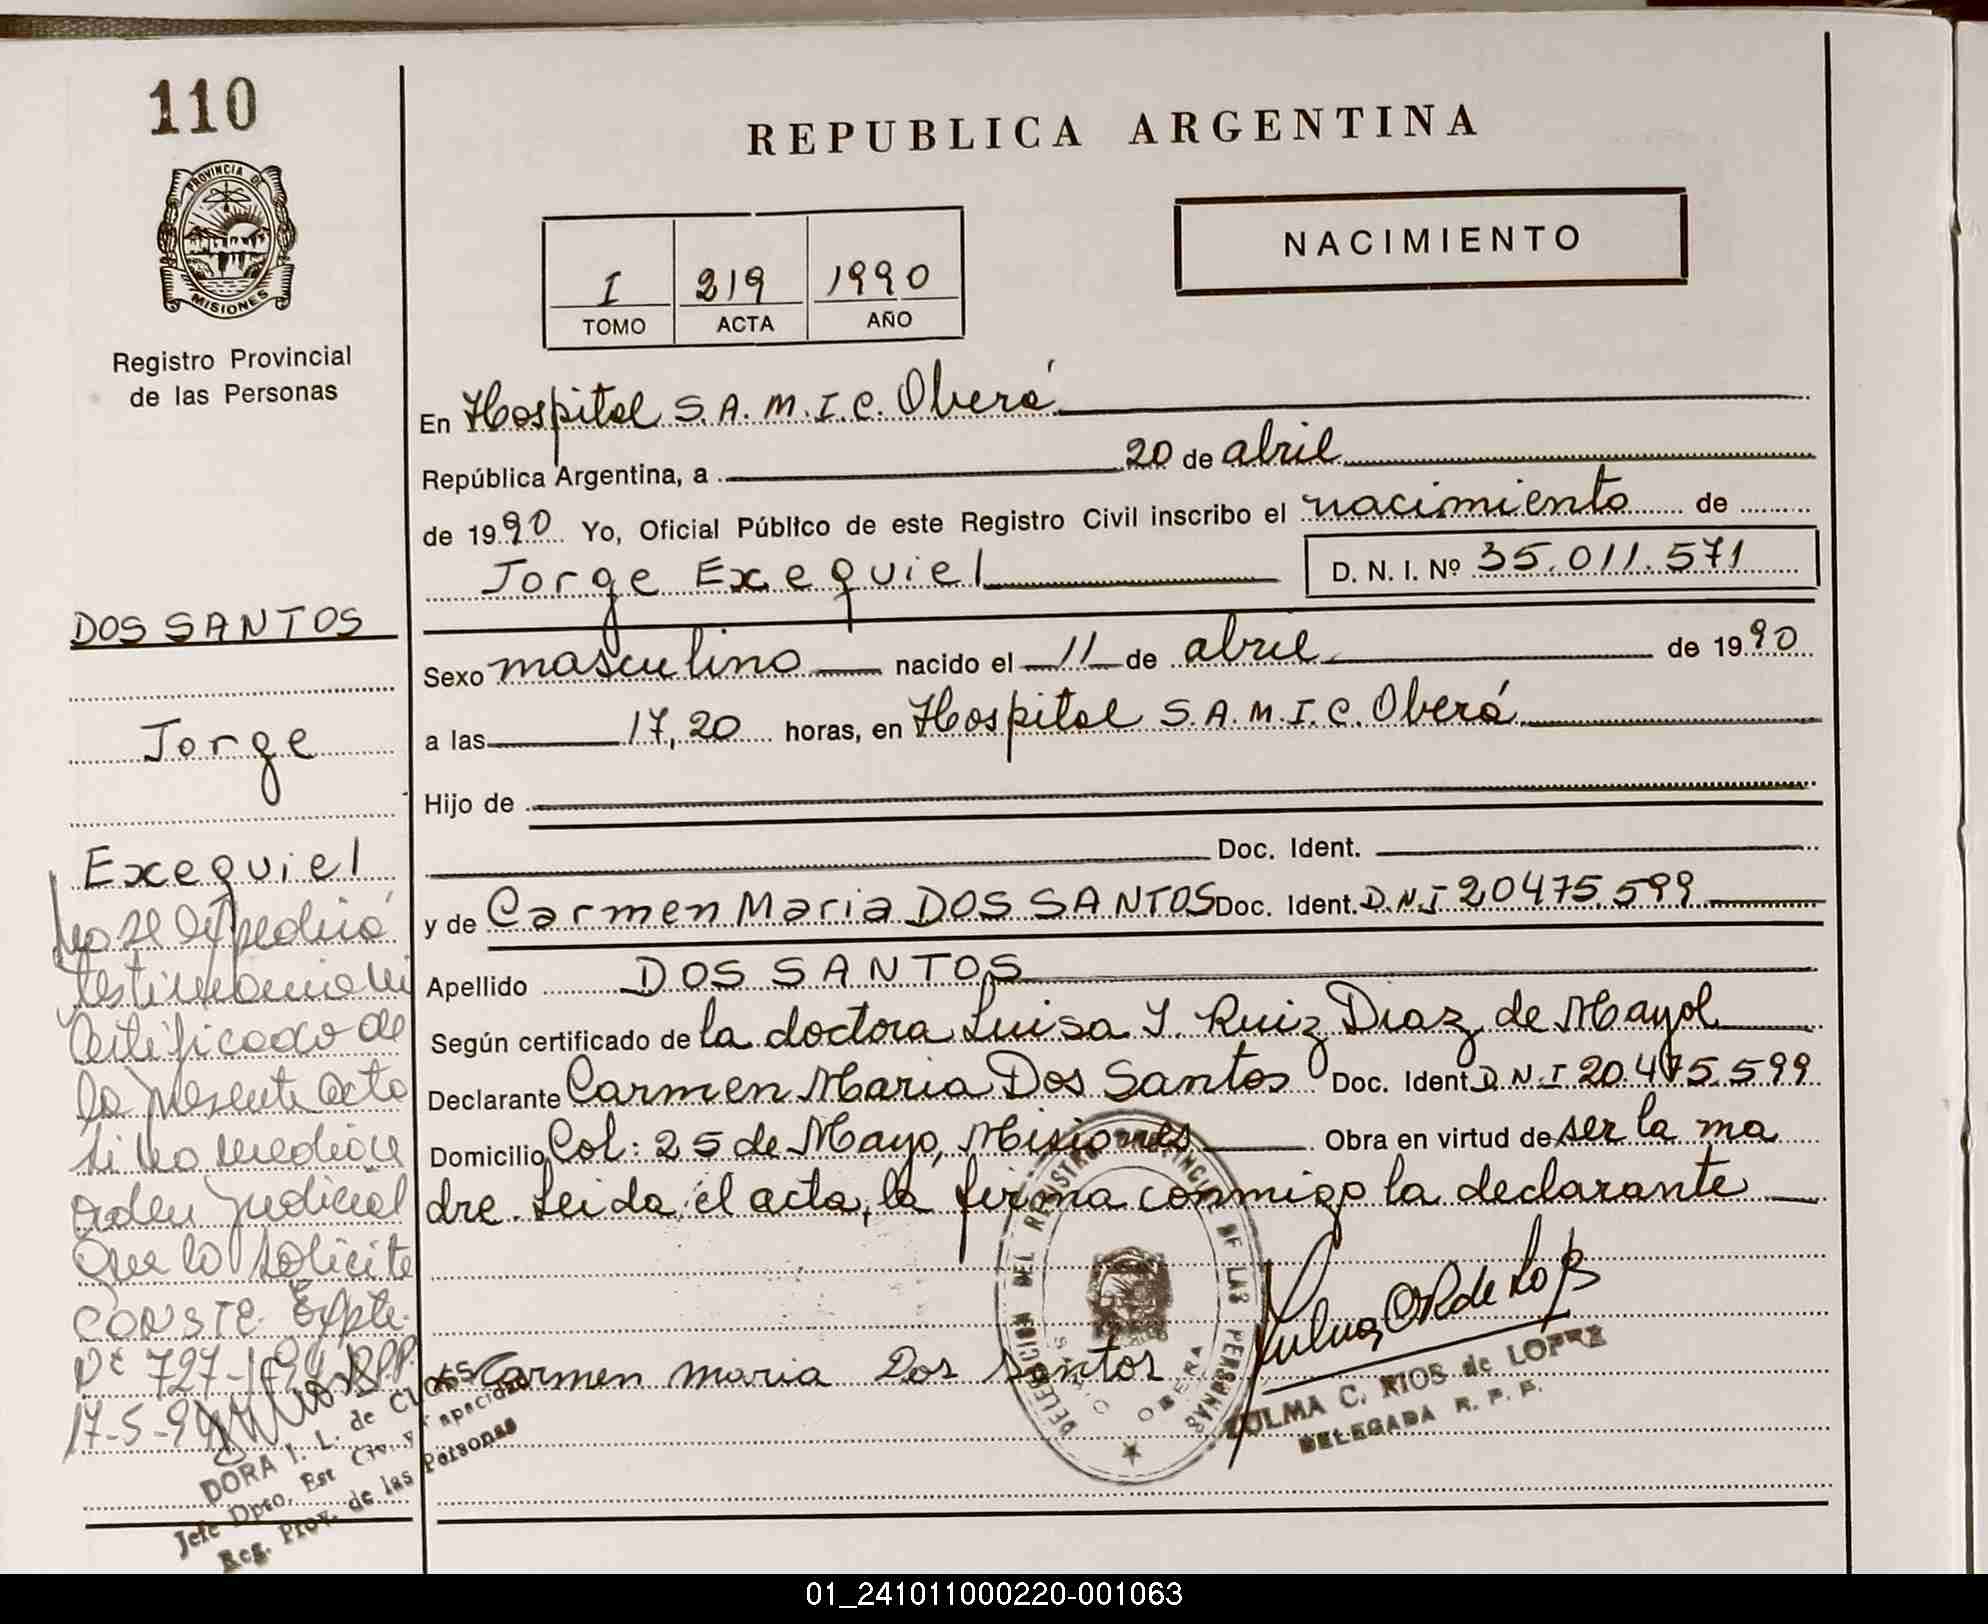 110
PROVINCIA DE
MISIONES
Registro Provincial
de las Personas
DOS SANTOS
Jorge
Exequiel
No se expedirá
testimonio ni
certificado de
la presente acta
si no media
orden judicial
que lo solicite
CONSTE. Expte.
Nº 727-1994 RPP.
17-5-94
DORA I. L. de
Jefe Dpto. Est Civ. y Capacidad
Reg. Prov. de las Personas
REPUBLICA ARGENTINA
I 219 1990
TOMO ACTA AÑO
NACIMIENTO
En Hospital S.A.M.I.C. Oberá
República Argentina, a 20 de abril
de 1990 Yo, Oficial Público de este Registro Civil inscribo el nacimiento de
Jorge Exequiel D. N. I. Nº 35.011.571
Sexo masculino nacido el 11 de abril de 1990
a las 17,20 horas, en Hospital S.A.M.I.C. Oberá
Hijo de
Doc. Ident.
y de Carmen Maria DOS SANTOS Doc. Ident. D.N.I 20475.599
Apellido DOS SANTOS
Según certificado de la doctora Luisa Y. Ruiz Diaz de Mayol
Declarante Carmen Maria Dos Santos Doc. Ident D.N.I 20.475.599
Domicilio Col: 25 de Mayo, Misiones Obra en virtud de ser la ma
dre. Leida el acta, la firma conmigo la declarante
Carmen maria Dos Santos
DELEGACION DEL REGISTRO PROVINCIAL DE LAS PERSONAS
OBERA
ZULMA C. RIOS de LOPEZ
DELEGADA R. P. P.
01_241011000220-001063